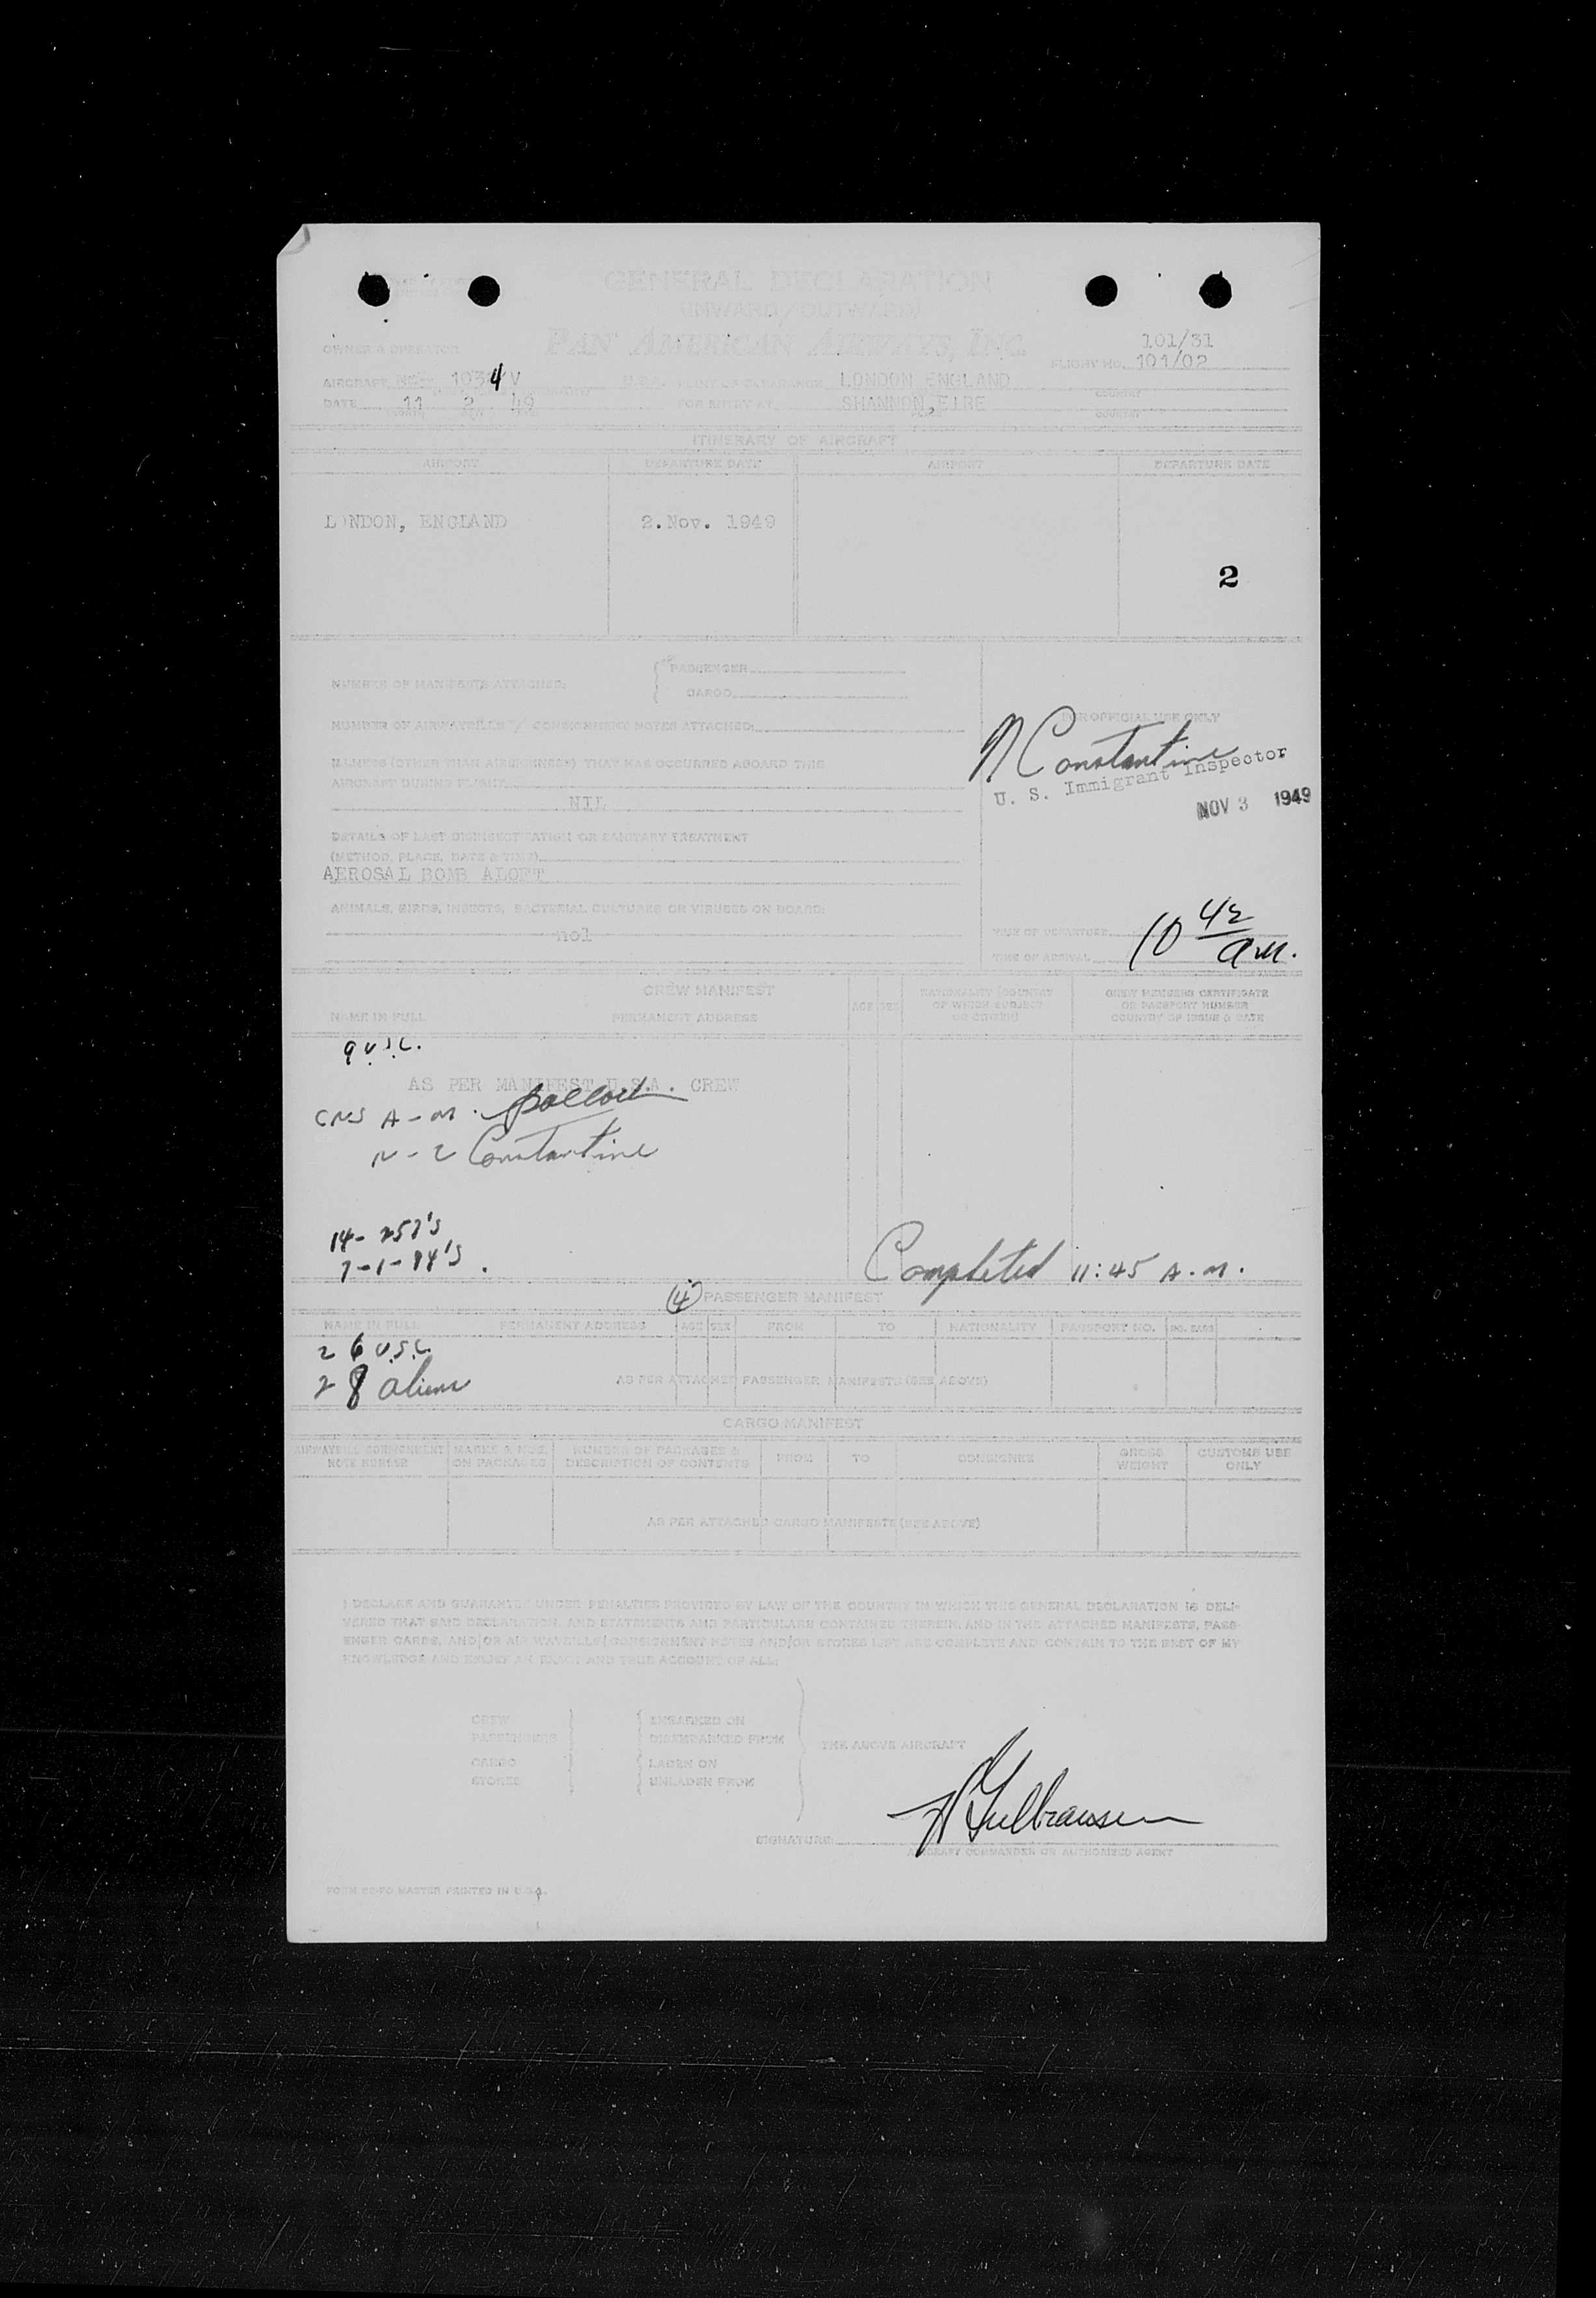 GENERAL DECLARATION
(INWARD / OUTWARD)
PAN AMERICAN AIRWAYS, INC.
101/31
OWNER & OPERATOR
FLIGHT NO. 101/02
AIRCRAFT 1034V U.S.A. LONDON ENGLAND
COUNTRY
DATE 11 2 49 FOR ENTRY AT SHANNON, EIRE
COUNTRY
ITINERARY OF AIRCRAFT
AIRPORT DEPARTURE DATE AIRPORT DEPARTURE DATE
LONDON, ENGLAND 2.Nov. 1949
2
NUMBER OF MANIFESTS ATTACHED: PASSENGER
CARGO
NUMBER OF AIRWAYBILLS / CONSIGNMENT NOTES ATTACHED:
FOR OFFICIAL USE ONLY
N Constantine
U. S. Immigrant Inspector
NOV 3 1949
ILLNESS (OTHER THAN AIRSICKNESS) THAT HAS OCCURRED ABOARD THIS
AIRCRAFT DURING FLIGHT
NIL
DETAILS OF LAST DISINSECTIZATION OR SANITARY TREATMENT
(METHOD, PLACE, DATE & TIME)
AEROSAL BOMB ALOFT
ANIMALS, BIRDS, INSECTS, BACTERIAL CULTURES OR VIRUSES ON BOARD:
nol
TIME OF DEPARTURE
TIME OF ARRIVAL
10 42 a.m.
CREW MANIFEST
NAME IN FULL PERMANENT ADDRESS AGE SEX NATIONALITY (COUNTRY OF WHICH SUBJECT OR CITIZEN) CREW MEMBERS CERTIFICATE OR PASSPORT NUMBER COUNTRY OF ISSUE & DATE
9 U.S.C.
AS PER MANIFEST U.S.A. CREW
CNS A-M.
N-Z Constantine
14- 257's
7-1-94's.
Completed 11:45 A.M.
(4) PASSENGER MANIFEST
NAME IN FULL PERMANENT ADDRESS AGE SEX FROM TO NATIONALITY PASSPORT NO. NO. BAGS
26 U.S.C.
28 aliens
AS PER ATTACHED PASSENGER MANIFESTS (SEE ABOVE)
CARGO MANIFEST
AIRWAYBILL CONSIGNMENT NOTE NUMBER MARKS & NOS. ON PACKAGES NUMBER OF PACKAGES & DESCRIPTION OF CONTENTS FROM TO CONSIGNEE GROSS WEIGHT CUSTOMS USE ONLY
AS PER ATTACHED CARGO MANIFESTS (SEE ABOVE)
I DECLARE AND GUARANTEE UNDER PENALTIES PROVIDED BY LAW OF THE COUNTRY IN WHICH THIS GENERAL DECLARATION IS DELI-
VERED THAT SAID DECLARATION, AND STATEMENTS AND PARTICULARS CONTAINED THEREIN, AND IN THE ATTACHED MANIFESTS, PASS-
ENGER CARDS, AND/OR AIR WAYBILLS/CONSIGNMENT NOTES AND/OR STORES LIST ARE COMPLETE AND CONTAIN TO THE BEST OF MY
KNOWLEDGE AND BELIEF AN EXACT AND TRUE ACCOUNT OF ALL:
CREW EMBARKED ON
PASSENGERS DISEMBARKED FROM
THE ABOVE AIRCRAFT
CARGO LADEN ON
STORES UNLADEN FROM
SIGNATURE: H Gulbransen
AIRCRAFT COMMANDER OR AUTHORIZED AGENT
MASTER PRINTED IN U.S.A.